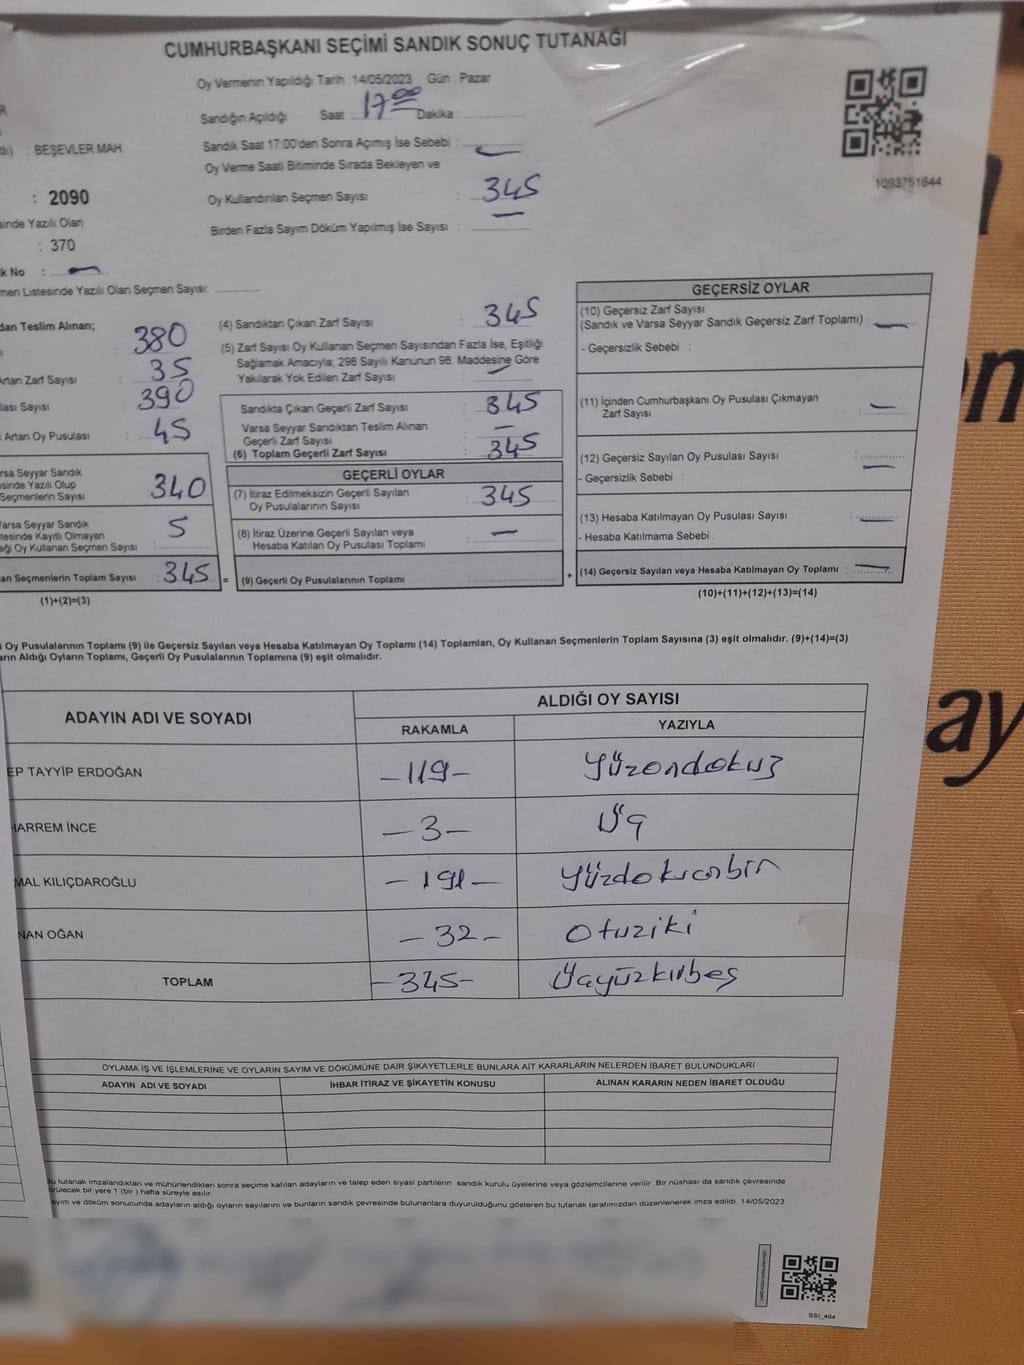 CUMHURBAŞKANI SEÇİMİ SANDIK SONUÇ TUTANAĞI
Oy Vermenin Yapıldığı Tarih : 14/05/2023 Gün : Pazar
Sandığın Açıldığı Saat : 17:00 Dakika :
: BEŞEVLER MAH.
Sandık Saat 17:00'den Sonra Açımış İse Sebebi : —
Oy Verme Saati Bitiminde Sırada Bekleyen ve
Oy Kullandırılan Seçmen Sayısı : 345
Birden Fazla Sayım Döküm Yapılmış İse Sayısı : —
: 2090
Yazılı Olan
: 370
No : —
Listesinde Yazılı Olan Seçmen Sayısı:
1093751644
Teslim Alınan;
380
Artan Zarf Sayısı : 35
Sayısı : 390
Artan Oy Pusulası : 45
Seyyar Sandık
Yazılı Olup
Seçmenlerin Sayısı 340
Varsa Seyyar Sandık
Kayıtlı Olmayan
Oy Kullanan Seçmen Sayısı : 5
Seçmenlerin Toplam Sayısı : 345 =
(1)+(2)=(3)
(4) Sandıktan Çıkan Zarf Sayısı : 345
(5) Zarf Sayısı Oy Kullanan Seçmen Sayısından Fazla İse, Eşitliği
Sağlamak Amacıyla; 298 Sayılı Kanunun 98. Maddesine Göre
Yakılarak Yok Edilen Zarf Sayısı : —
Sandıkta Çıkan Geçerli Zarf Sayısı : 345
Varsa Seyyar Sandıktan Teslim Alınan
Geçerli Zarf Sayısı : —
(6) Toplam Geçerli Zarf Sayısı : 345
GEÇERLİ OYLAR
(7) İtiraz Edilmeksizin Geçerli Sayılan
Oy Pusulalarının Sayısı : 345
(8) İtiraz Üzerine Geçerli Sayılan veya
Hesaba Katılan Oy Pusulası Toplamı : —
(9) Geçerli Oy Pusulalarının Toplamı : +
GEÇERSİZ OYLAR
(10) Geçersiz Zarf Sayısı
(Sandık ve Varsa Seyyar Sandık Geçersiz Zarf Toplamı) : —
- Geçersizlik Sebebi :
(11) İçinden Cumhurbaşkanı Oy Pusulası Çıkmayan
Zarf Sayısı : —
(12) Geçersiz Sayılan Oy Pusulası Sayısı : —
- Geçersizlik Sebebi :
(13) Hesaba Katılmayan Oy Pusulası Sayısı : —
- Hesaba Katılmama Sebebi :
(14) Geçersiz Sayılan veya Hesaba Katılmayan Oy Toplamı : —
(10)+(11)+(12)+(13)=(14)
Oy Pusulalarının Toplamı (9) ile Geçersiz Sayılan veya Hesaba Katılmayan Oy Toplamı (14) Toplamları, Oy Kullanan Seçmenlerin Toplam Sayısına (3) eşit olmalıdır. (9)+(14)=(3)
Aldığı Oyların Toplamı, Geçerli Oy Pusulalarının Toplamına (9) eşit olmalıdır.
ADAYIN ADI VE SOYADI ALDIĞI OY SAYISI
RAKAMLA YAZIYLA
TAYYİP ERDOĞAN -119- Yüzondokuz
İNCE -3- Üç
KILIÇDAROĞLU -191- Yüzdoksanbir
OĞAN -32- Otuziki
TOPLAM -345- Üçyüzkırkbeş
OYLAMA İŞ VE İŞLEMLERİNE VE OYLARIN SAYIM VE DÖKÜMÜNE DAİR ŞİKAYETLERLE BUNLARA AİT KARARLARIN NELERDEN İBARET BULUNDUKLARI
ADAYIN ADI VE SOYADI İHBAR İTİRAZ VE ŞİKAYETİN KONUSU ALINAN KARARIN NEDEN İBARET OLDUĞU
tutanak imzalandıktan ve mühürlendikten sonra seçime katılan adayların ve talep eden siyasi partilerin sandık kurulu üyelerine veya gözlemcilerine verilir. Bir nüshası da sandık çevresinde
bir yere 1 (bir) hafta süreyle asılır
ve döküm sonucunda adayların aldığı oyların sayılarını ve bunların sandık çevresinde bulunanlara duyurulduğunu gösteren bu tutanak tarafımızdan düzenlenerek imza edildi. 14/05/2023
SSI_404
ay